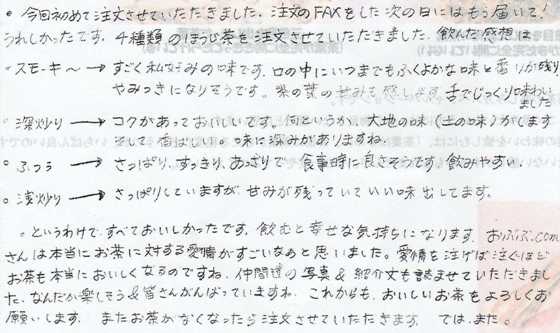 。今回初めて注文させていただきました。注文のFAXをした次の日にはもう届いて！
うれしかったです。4種類のほうじ茶を注文させていただきました。飲んだ感想は
。スモーキー → すごく私好みの味です。口の中にいつまでもふくよかな味と香りが残り
やみつきになりそうです。茶の葉の甘みも感じます。舌でじっくり味わい
ました
。深炒り → コクがあっておいしいです。何というか、大地の味（土の味）がします
そして香ばしい。味に深みがありますね。
。ふつう → さっぱり、すっきり、あっさりで食事時に良さそうです。飲みやすい。
。浅炒り → さっぱりしていますが、甘みが残っていていい味出してます。
。というわけで、すべておいしかったです。飲むと幸せな気持ちになります。おぶぶ.com
さんは本当にお茶に対する愛情がすごいなぁと思いました。愛情も注げば注ぐほど
お茶も本当においしくなるのですね。仲間達の写真&紹介文も読ませていただきまし
た。なんだか楽しそう&皆さんがんばっていますね。これからも、おいしいお茶をよろしくお
願いします。またお茶がなくなったら注文させていただきます。では、また。